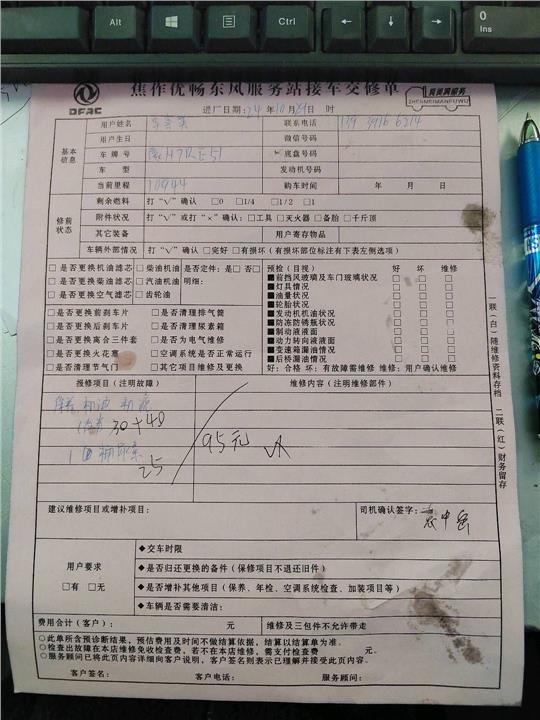 Alt
Ctrl
0
Ins
DFAC
焦作优畅东风服务站接车交修单
臻美满服务
ZHENMEIMANFUWU
进厂日期：24年10月29日 时
用户姓名 联系电话
用户生日 微信号码
基本信息
车牌号 底盘号码
车型 发动机号码
当前里程 10944 购车时间 年 月 日
修前状态
剩余燃料 打“√”确认 □0 □1/4 □1/2 □1
附件状况 打“√”或打“×”确认：□工具 □灭火器 □备胎 □千斤顶
其它装备 用户寄存物品
车辆外部情况 打“√”确认 □完好 □有损坏（有损坏部位标注有下表左侧选项）
□是否更换机油滤芯 □柴油机油 是否定件：是□否□
□是否更换柴油滤芯 □汽油机油 明细：
□是否更换空气滤芯 □齿轮油
□是否更换前刹车片 □是否清理排气筒
□是否更换后刹车片 □是否清理尿素箱
□是否更换离合三件套 □是否为电气维修
□是否更换火花塞 □空调系统是否正常运行
□是否清理节气门 □其它项目维修及更换
预检（目视） 好 坏 维修
■前挡风玻璃及车门玻璃状况 □ □ □
■灯具情况 □ □ □
■油量状况 □ □ □
■轮胎状况 □ □ □
■发动机机油状况 □ □ □
■防冻防锈瓶状况 □ □ □
■制动液液面 □ □ □
■动力转向液液面 □ □ □
■变速箱漏油情况 □ □ □
■后桥漏油情况 □ □ □
好：合格 坏：有故障需维修 维修：用户确认维修
报修项目（注明故障） 维修内容（注明维修部件）
机油
30+40
95元
25
建议维修项目或增补项目： 司机确认签字：
用户要求
□有 □无
◆交车时限
◆是否归还更换的备件（保修项目不退还旧件）
◆是否增补其他项目（保养、年检、空调系统检查、加装项目等）
◆车辆是否需要清洁：
费用合计（客户）： 元 维修及三包件不允许带走
○此单所含预诊断结果，预估费用及时间不做结算依据，结算以结算单为准。
○检查出故障在本店维修免收检查费，若不在本店维修，需支付检查费 元。
○服务顾问已将此页内容详细向客户说明，客户签名则表示已理解并接受此页内容。
客户签名： 客户电话： 服务顾问：
一联（白）随维修资料存档
二联（红）财务留存